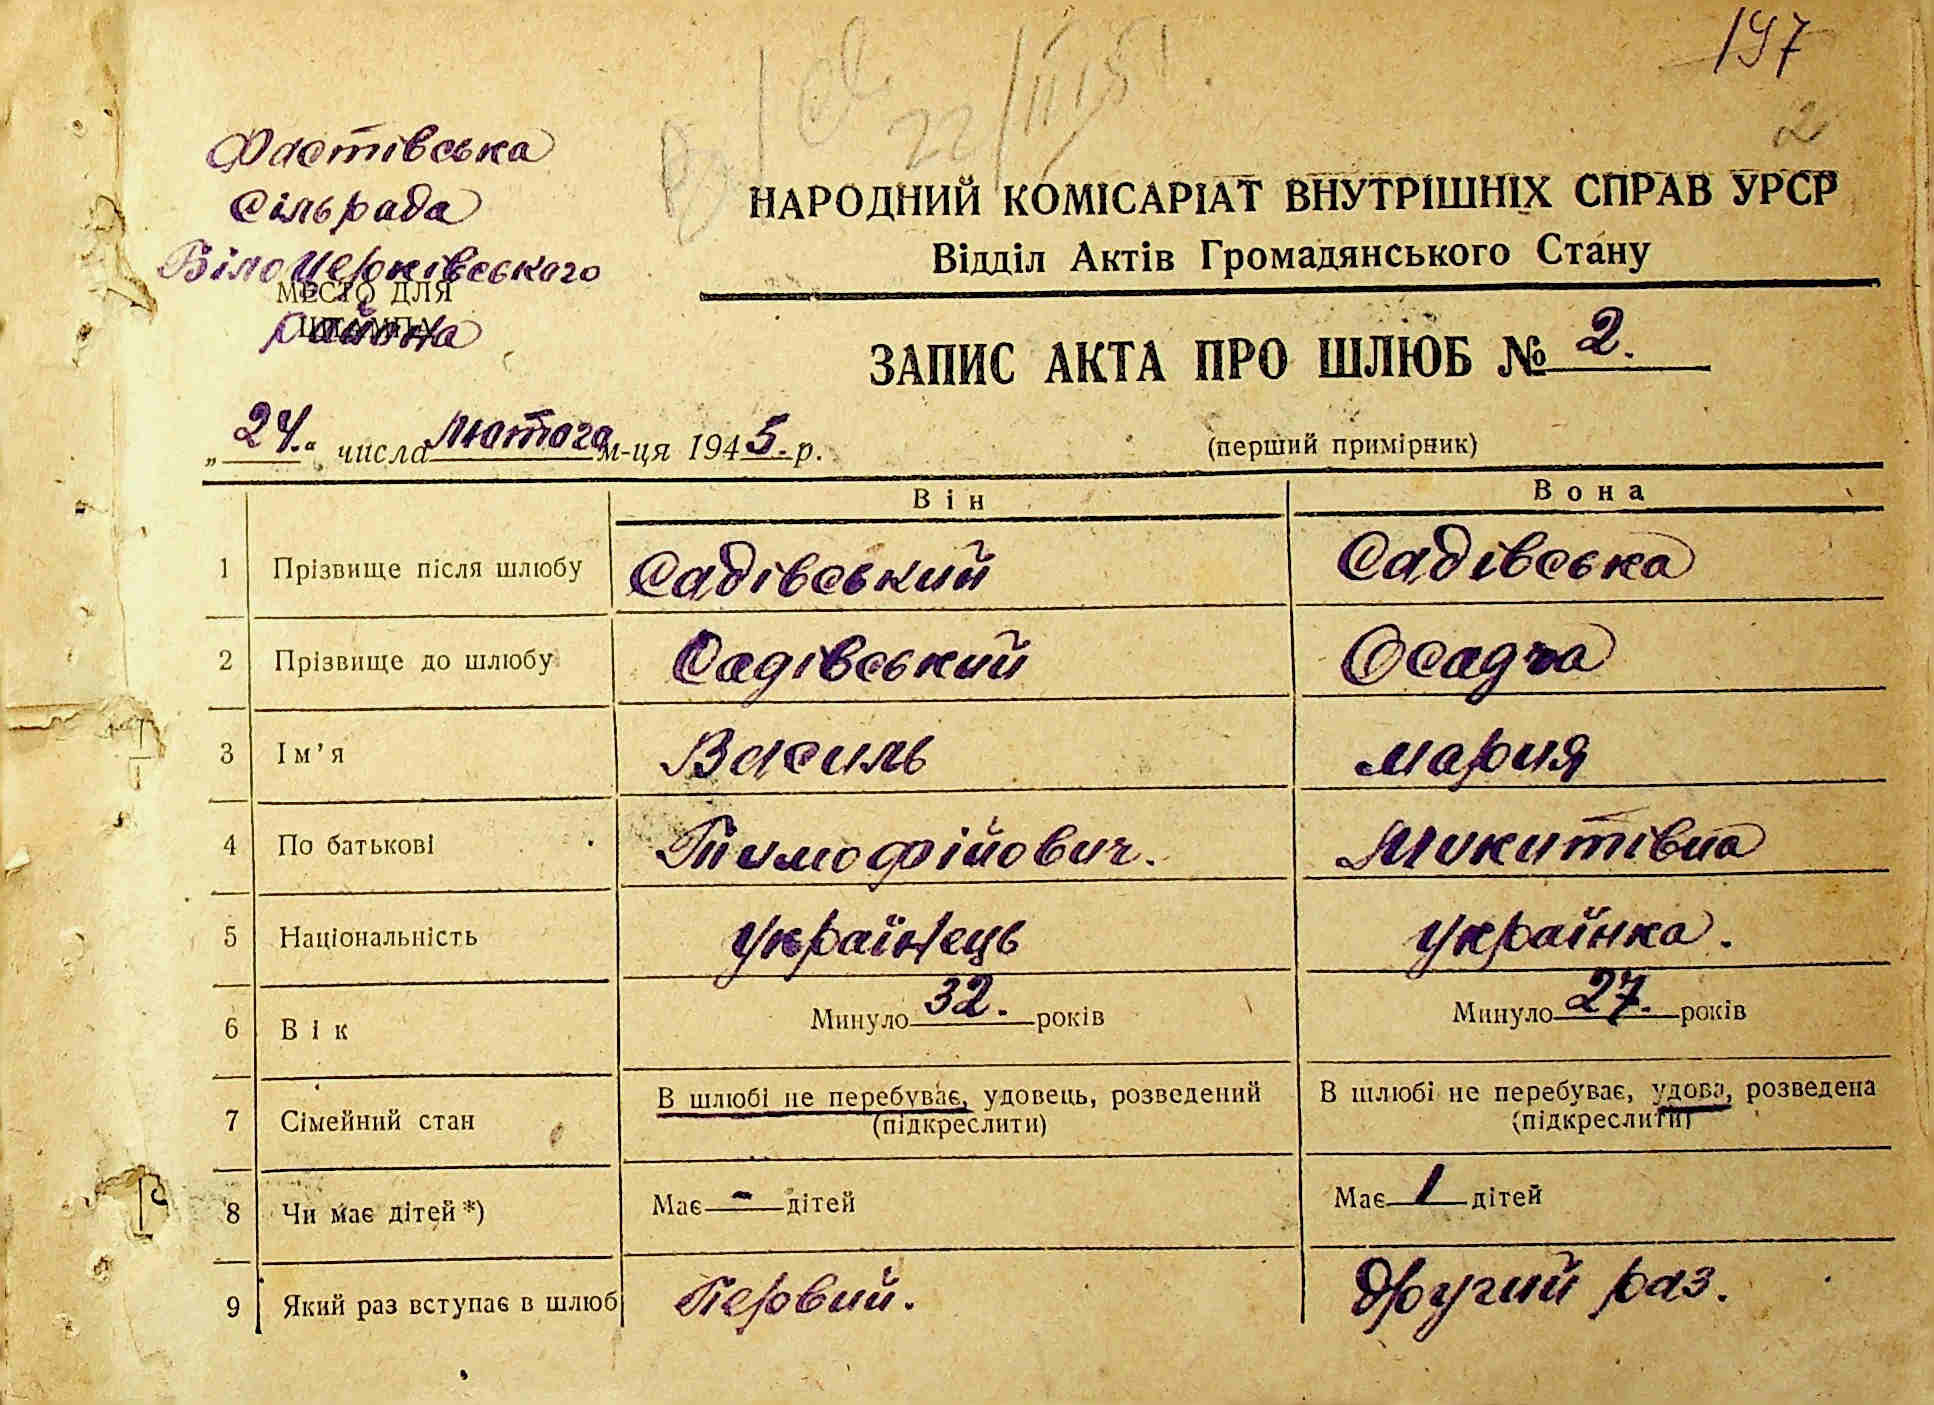 197
2
Фастівська
Сільрада
Білоцерківського
МЕСТО ДЛЯ
ШТАМПА
района
22/III 51
НАРОДНИЙ КОМІСАРІАТ ВНУТРІШНІХ СПРАВ УРСР
Відділ Актів Громадянського Стану
ЗАПИС АКТА ПРО ШЛЮБ № 2.
„24.“ числа лютого м-ця 1945. р.
(перший примірник)
Він Вона
1 Прізвище після шлюбу Садівський Садівська
2 Прізвище до шлюбу Садівський Осадча
3 Ім’я Василь мария
4 По батькові Тимофійович. Микитівна
5 Національність українець українка.
6 Вік Минуло 32. років Минуло 27. років
7 Сімейний стан В шлюбі не перебуває, удовець, розведений (підкреслити) В шлюбі не перебуває, удова, розведена (підкреслити)
8 Чи має дітей*) Має - дітей Має 1 дітей
9 Який раз вступає в шлюб Первий. Другий раз.